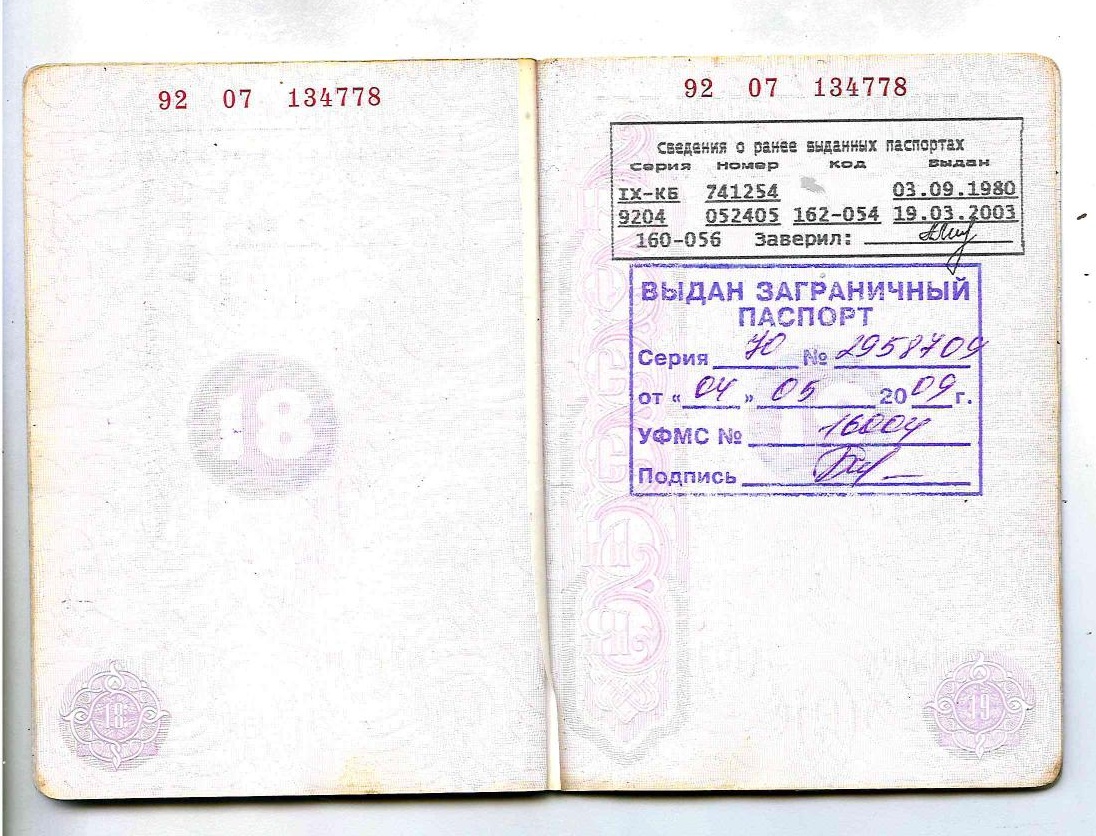 92 07 134778
18
18
92 07 134778
Сведения о ранее выданных паспортах
серия номер код выдан
IX-КБ 741254 03.09.1980
9204 052405 162-054 19.03.2003
160-056 Заверил:
ВЫДАН ЗАГРАНИЧНЫЙ
ПАСПОРТ
Серия 70 № 2958709
от « 04 » 05 20 09 г.
УФМС № 16004
Подпись
19